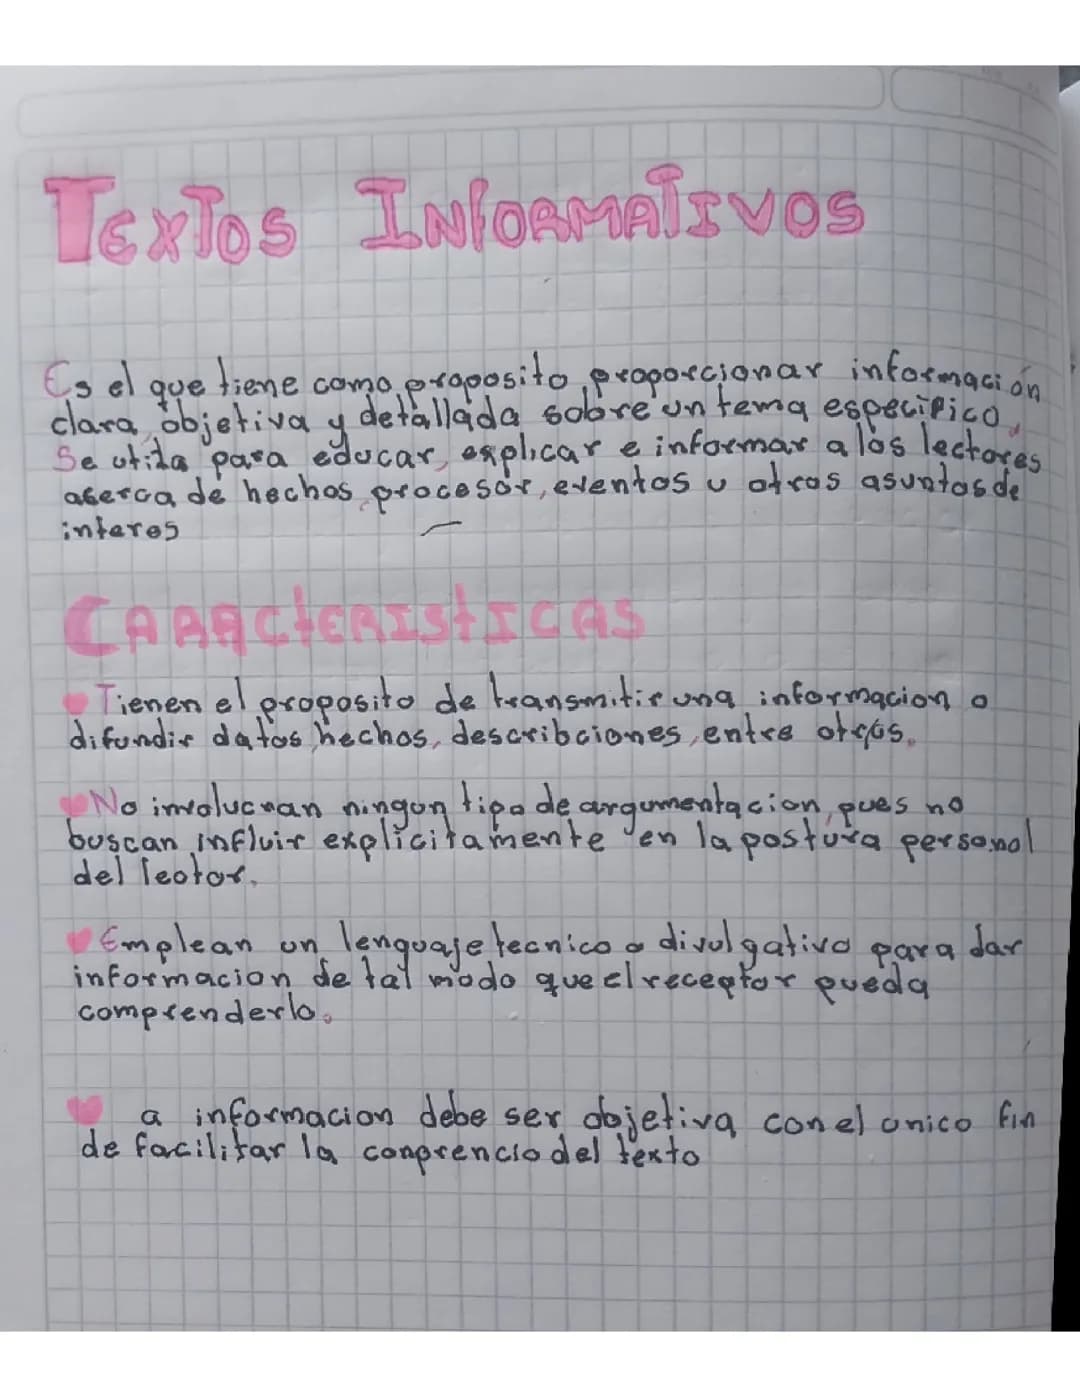 TEXTOS INFORMATIVOS
Es el que tiene como proposito, proporcionar información
clara, objetiva y detallada sobre un tema especifico,
Se utiliza para educar, explicar e informar a los lectores
acerca de hechos, procesos, eventos u otros asuntos de
interes
CARACtERIStICAS
Tienen el proposito de transmitir una informacion o
difundir datos, hechos, describciones, entre otros.
No involucran ningun tipo de argumentacion, pues no
buscan influir explicitamente en la postura personal
del lector.
Emplean un lenguaje tecnico o divulgativo para dar
informacion de tal modo que el receptor pueda
comprenderlo.
a informacion debe ser objetiva con el unico fin
de facilitar la conprencio del texto